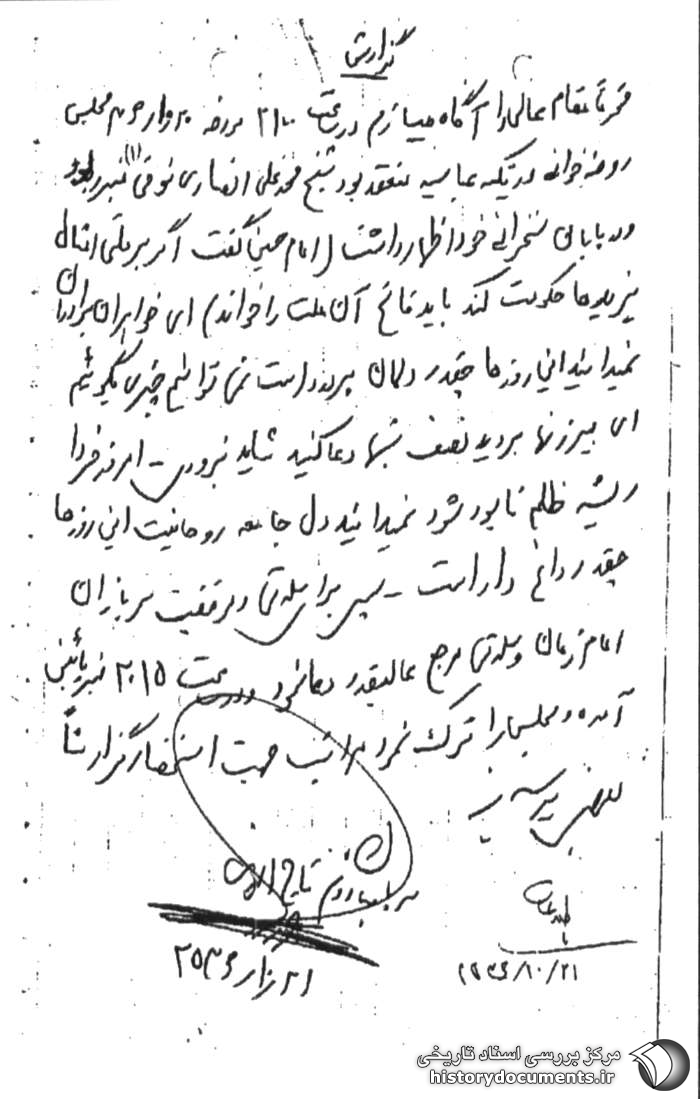 گزارش
محترماً مقام عالی را آگاه میسازم در ساعت ۲۱۰۰ مورخه مجلس
روضه خوانی در تکیه عباسیه منعقد بود شیخ محمد علی انصاری فوقی (۱) منبر رفته
ودر پایان سخنرانی خود اظهار داشت (امام حسین گفت اگر بر ملتی امثال
یزیدها حکومت کند باید فاتح آن ملت را خواند) ای خواهران برادران
نمیدانید این روزها چقدر دلمان پر درد است نمی توانیم چیزی بگوئیم
ای پیرزنها بروید نصف شبها دعا کنید شاید بزودی امروز فردا
ریشه ظلم نابود شود نمیدانید دل جامعه روحانیت این روزها
چقدر داغ دار است - سپس برای سلامتی و موفقیت سربازان
امام زمان و سلامتی مرجع عالیقدر دعا نمود ودر ساعت منبر پائین
آمده و مجلس را ترک نمود مراتب جهت استحضار گزارشاً
بعرض میرسد
۲۱ ۲۵۳۶
۲۵۳۶/۱۰/۲۱
مرکز بررسی اسناد تاریخی
historydocuments.ir